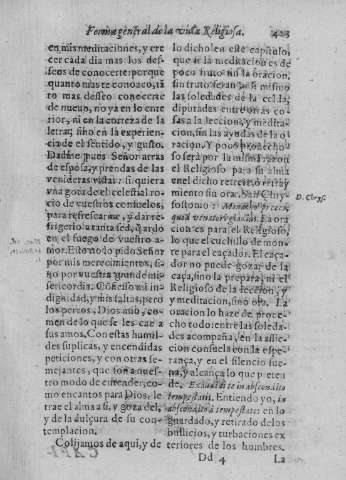 Forma general de la vida Religiosa. 423
en mis meditaciones, y cre
cer cada dia mas los des-
seos de conocerte: porque
quanto mas te conozco, tã
to mas desseo conocerte
de nueuo, no ya en lo exte
rior, ni en la corteza de la
letra, sino en la experien-
cia de el sentido, y gusto.
Dadme pues Señor arras
de esposa, y prendas de las
venideras vistas: si quiera
vna gota de el celestial ro-
cio de vuestros consuelos,
para refrescarme, y dar re-
frigerio a tanta sed, q̃ ardo
en el fuego de vuestro a-
mor. Esto no lo pido Señor
por mis merecimientos, si
no por vuestra grande mi-
sericordia. Confiesso mi in-
dignidad, y mis faltas, pero
los perros, Dios mio, co-
men de lo que se les cae a
sus amos. Con estas humil-
des suplicas, y encendidas
peticiones, y con otras se-
mejantes, que son a nues-
tro modo de entender, co-
mo encantos para Dios, le
trae el alma a si, y goza del,
y de la dulçura de su con-
templacion.
Colijamos de aqui, y de
lo dicho en este capitulo,
que ni la meditacion es de
poco fruto sin la oracion,
sin fruto seran a si mismo
las soledades de la celda,
diputadas entre otras co-
sas a la leccion, y medita-
cion, sin las ayudas de la o-
racion. Y poco prouecho
so sera por la misma razon
el Religioso para su alma
en el dicho recreo, ò retray
miento sin ora. San Chry-
sostomo:
D. Chrys.
La ora
cion es para el Religioso,
lo que el cuchillo de mon-
te para el caçador. El caça-
dor no puede gozar de la
caça, sino la prepara, ni el
Religioso de la leccion,
y meditacion, sino ora. La
oracion lo haze de proue-
cho todo: entre las soleda-
des acompaña, en la aflic-
cion consuela con la espe-
rança, y en el silencio sue-
na, y alcança lo que preten
de, Exaudi te in abscondito
tempestatis. Entiendo yo, in
abscondito à tempestate: en lo
guardado, y retirado de los
bullicios, y turbaciones ex
teriores de los hombres.
Dd. 4 La